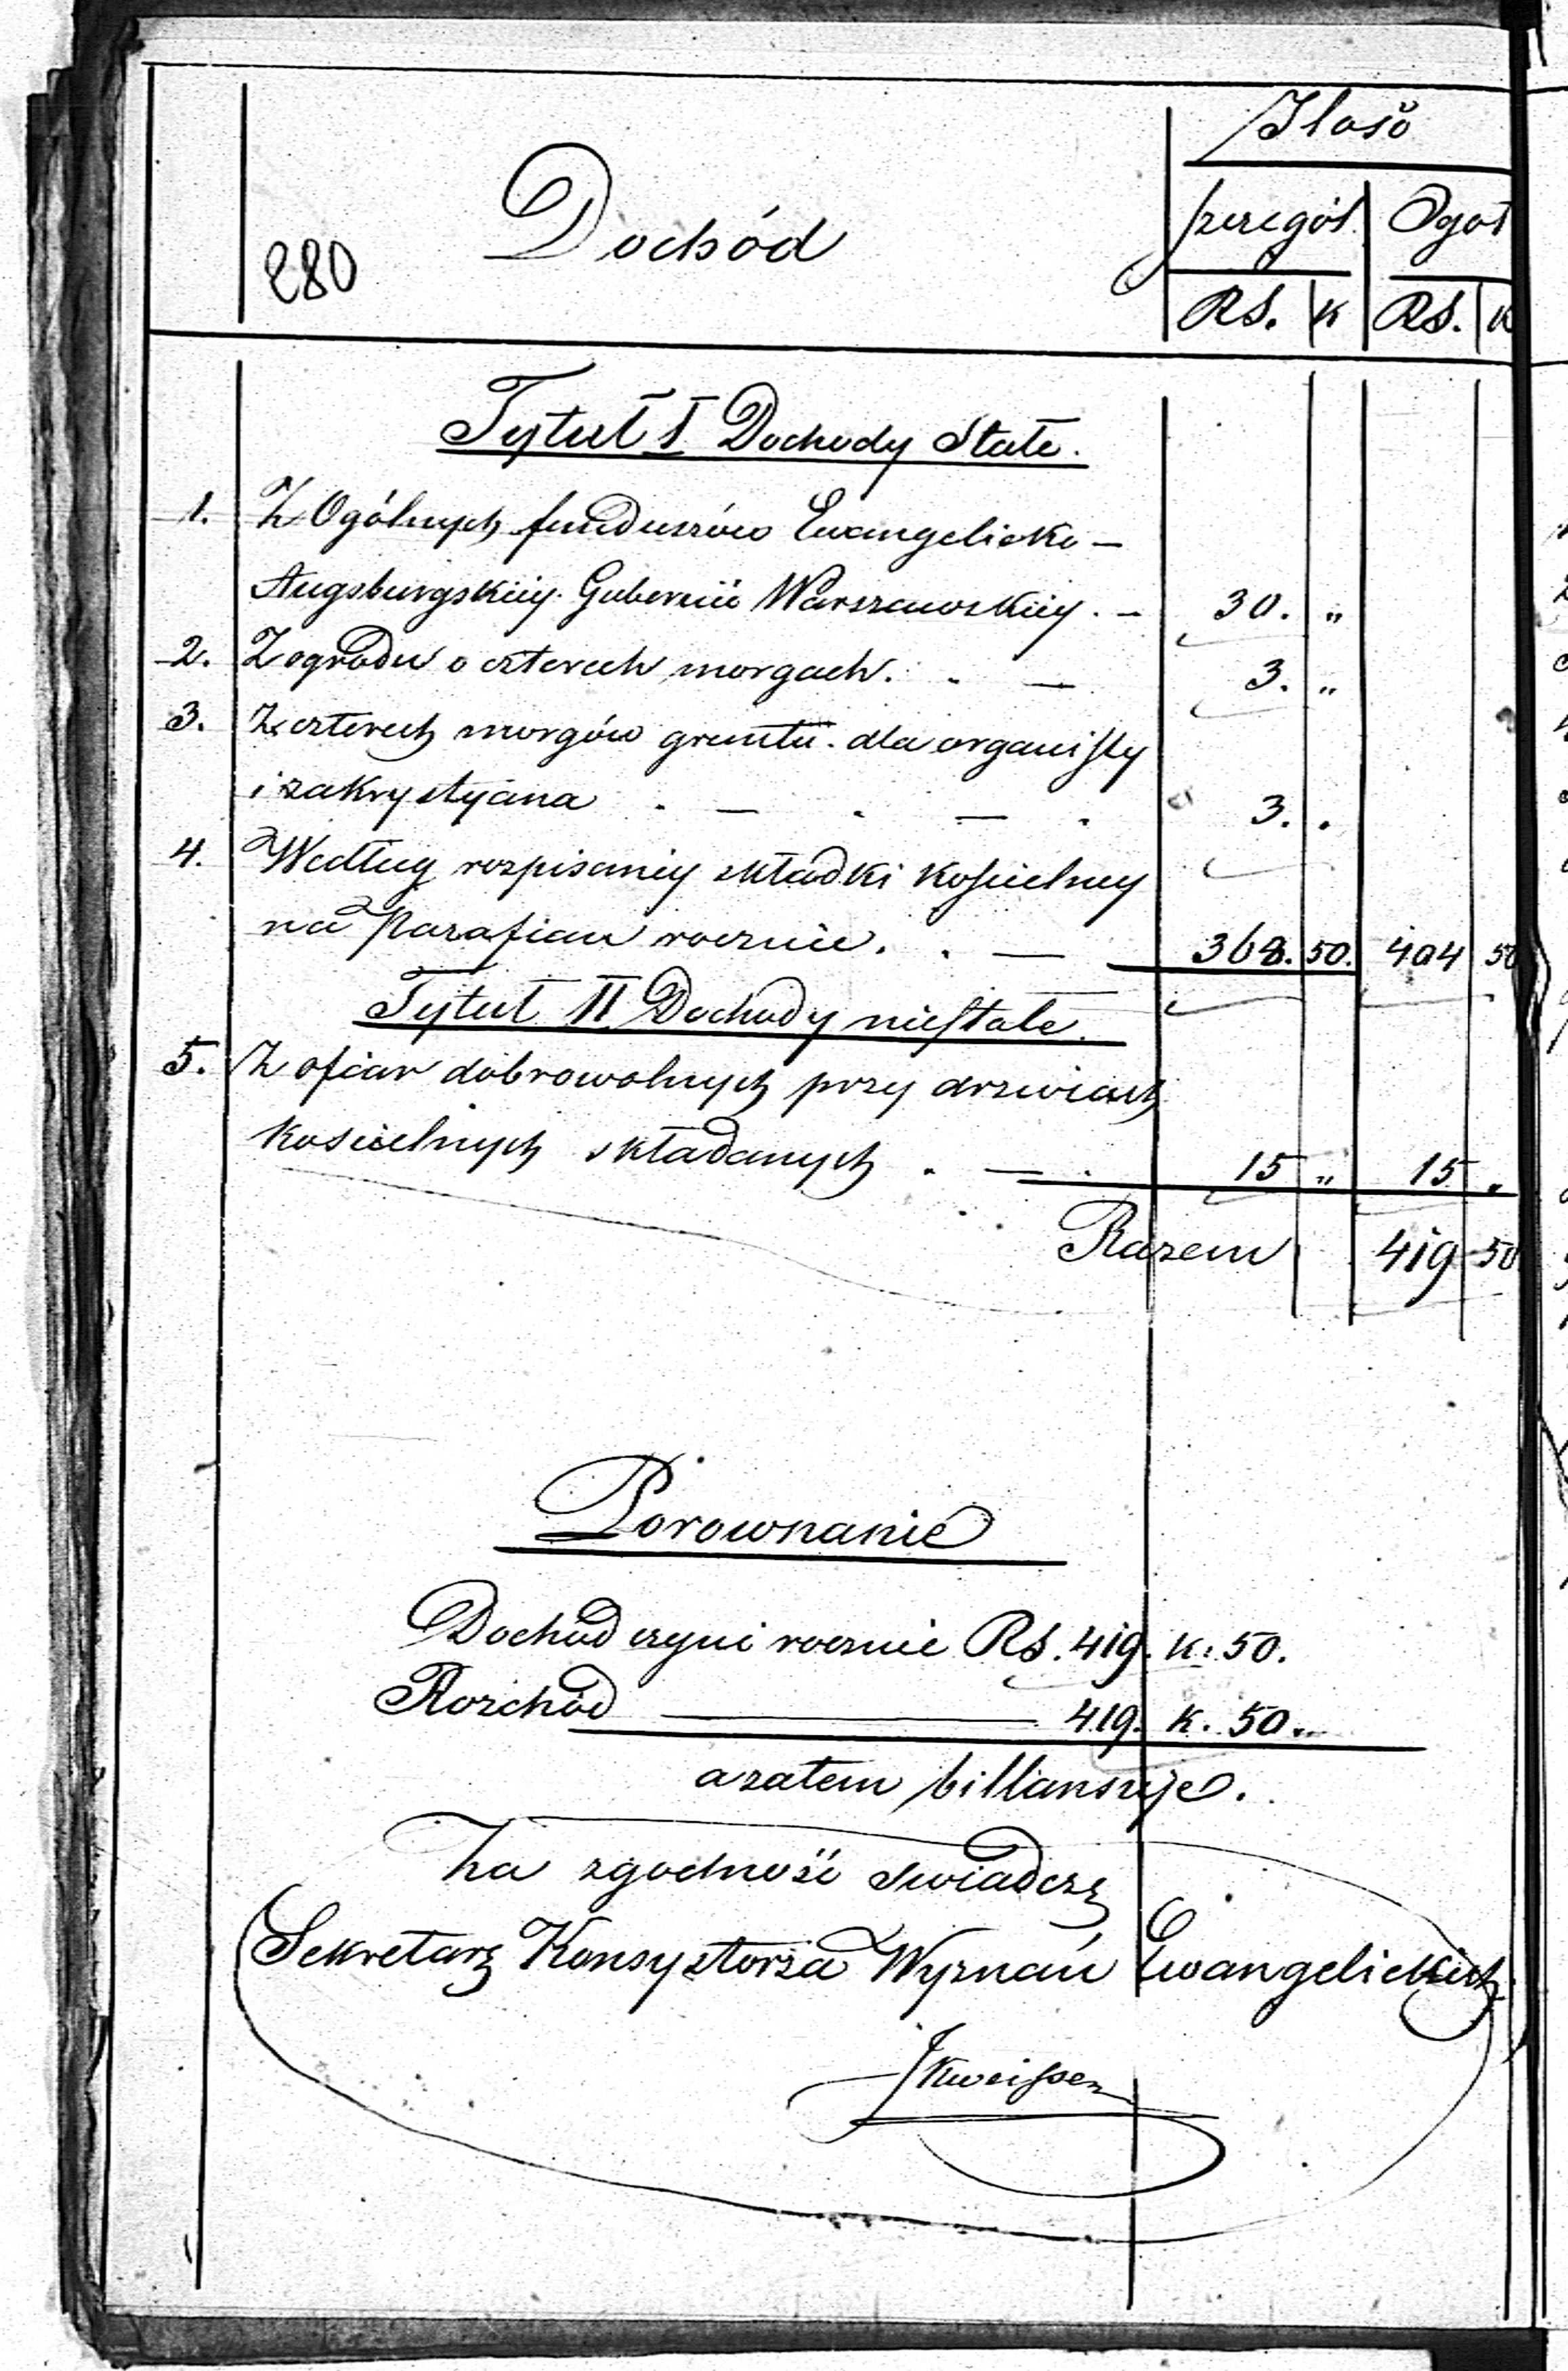 Ilość
szczegół. Ogół
280 Dochód
RS. K RS. K
Tytuł I Dochody Stałe.
1. Z Ogólnych funduszów Ewangelicko-
Augsburgskiéy Gubernii Warszawskiéy. - 30. "
2. Z ogrodu o czterech morgach. . — 3. "
3. Z czterech morgów gruntu dla organisty
i zakrystyana . — . — . 3. .
4. Według rozpisaniey składki kościelney
na Parafian rocznie. . — 368. 50. 404 50
Tytuł II Dochody niestałe.
5. Z ofiar dobrowolnych przy drzwiach
kościelnych składanych . — . 15 " 15 "
Razem 419 50
Porownanie
Dochód czyni rocznie RS. 419. k. 50.
Rozchód — 419. k. 50.
a zatem billansuje.
Za zgodność świadczę
Sekretarz Konsystorza Wyznań Ewangelickich